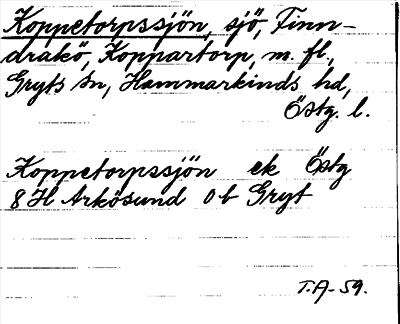 Koppetorpssjön, sjö, Finn-
drakö, Koppartorp, m. fl.,
Gryts sn, Hammarkinds hd,
Östg. l.
Koppetorpssjön ek Östg
8H Arkösund 0 b Gryt
T.A-59.